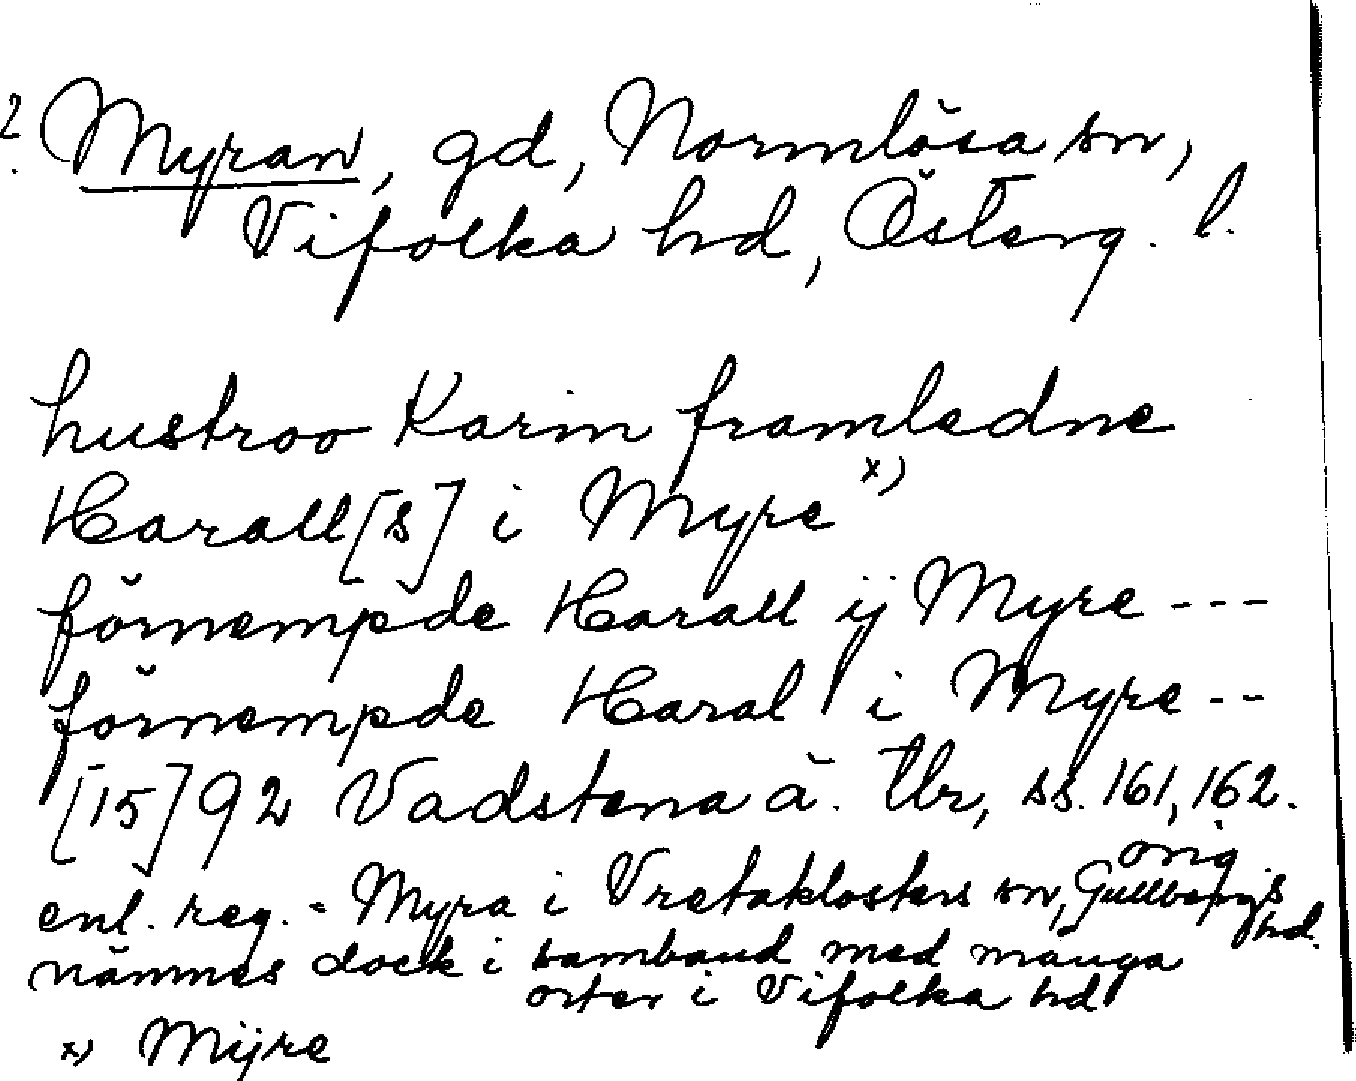 ? Myran, gd, Normlösa sn,
Vifolka hd, Österg. l.
hustroo Karin framledne
Harall[s] i Myre x)
förnempde Harall ij Myre ---
förnempde Haral i Myre --
[15]92 Vadstena ä. Tbr, ss. 161, 162.
orig.
enl. reg. = Myra i Vretaklosters sn, Gullbergs
hd.
nämnes dock i samband med många
orter i Vifolka hd
x) Mÿre